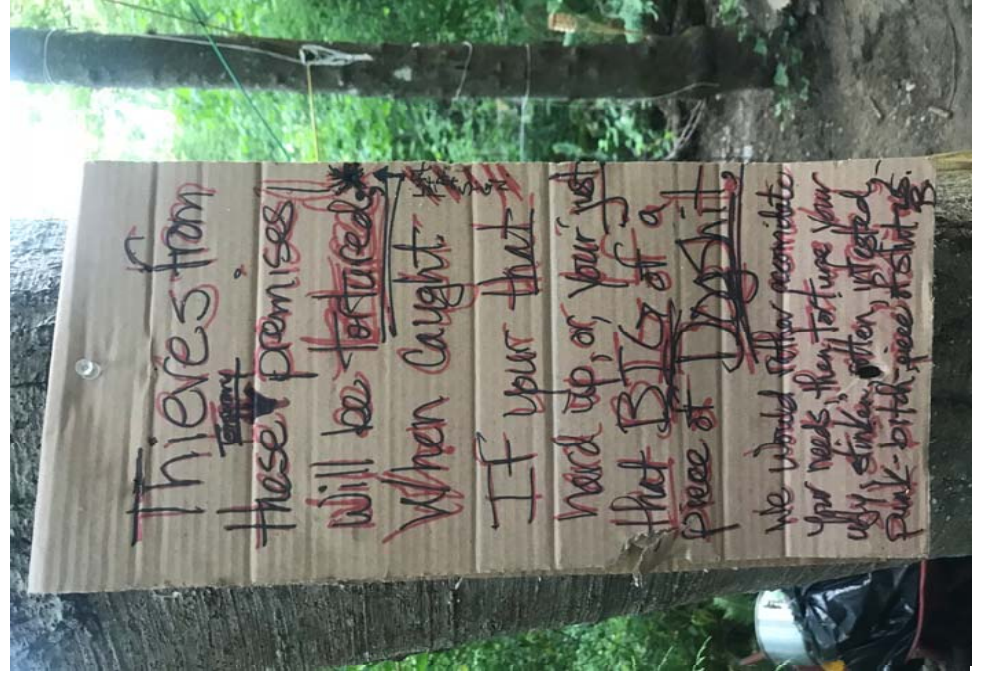 Thieves from
these premises
will be tortured
When caught
If your that
hard up, or, your just
that BIG off a
piece of Dogshit
We would rather accomidate
your needs, then torture your
ugly, stinken, rotten,
punk-bitch, piece of shit